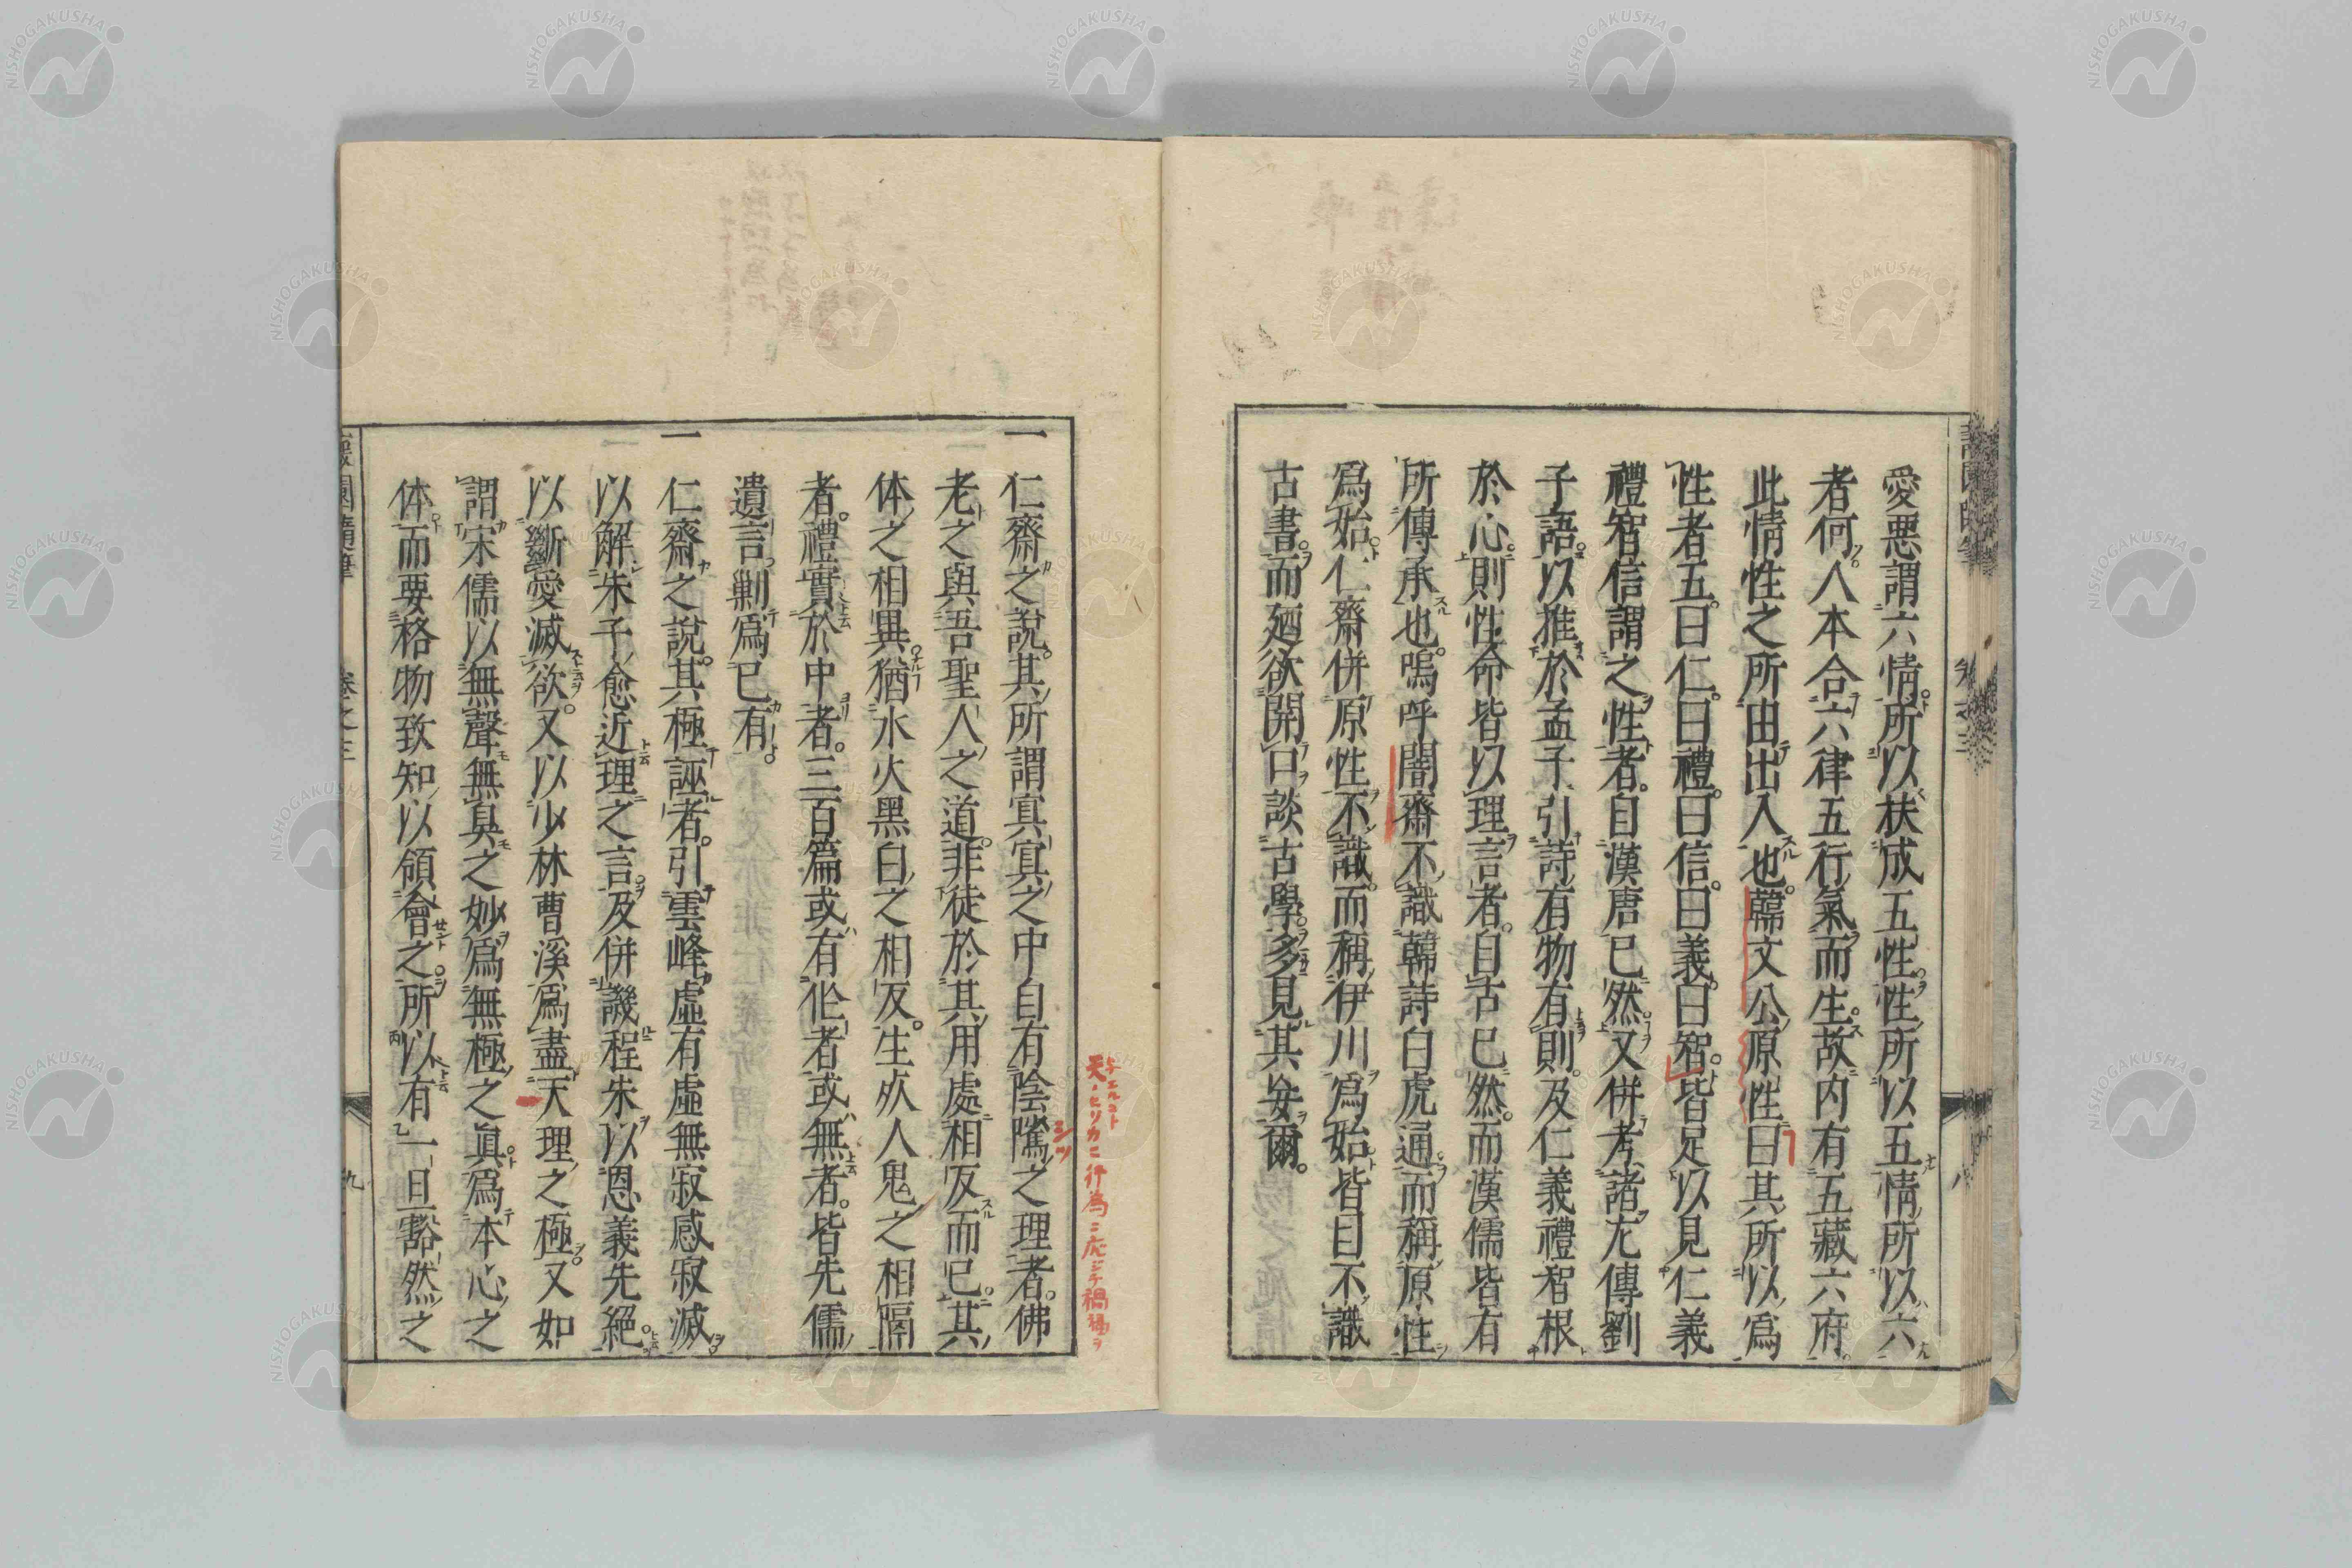 愛惡謂六情所以扶成五性性所以五情所以六
者何人本合六律五行氣而生故内有五藏六府
此情性之所由出入也韓文公原性曰其所以爲
性者五曰仁曰禮曰信曰義曰智皆足以見仁義
禮智信謂之性者自漢唐已然又併考諸左傳劉
子語以推於孟子引詩有物有則及仁義禮智根
於心則性命皆以理言者自古已然而漢儒皆有
所傳承也嗚呼闇齋不識韓詩白虎通而稱原性
爲始仁齋併原性不識而稱伊川爲始皆目不識
古書而廼欲開口談古學多見其妄爾
天ノヒソカニ行為ニ応ジテ禍福ヲ
与エルコト
一仁齋之說其所謂冥冥之中自有陰騭之理者佛
老之與吾聖人之道非徒於其用處相反而已其
体之相異猶水火黑白之相反生死人鬼之相隔
者禮實於中者三百篇或有作者或無者皆先儒
遺言剿爲已有
一仁齋之說其極誣者引雲峰虛有虛無寂感寂滅
以解朱子愈近理之言及併譏程朱以恩義先絕
以斷愛滅欲又以少林曹溪爲盡天理之極又如
謂宋儒以無聲無臭之妙爲無極之眞爲本心之
体而要格物致知以領會之所以有一旦豁然之
蘐園隨筆 卷之三 九
NISHOGAKUSHA